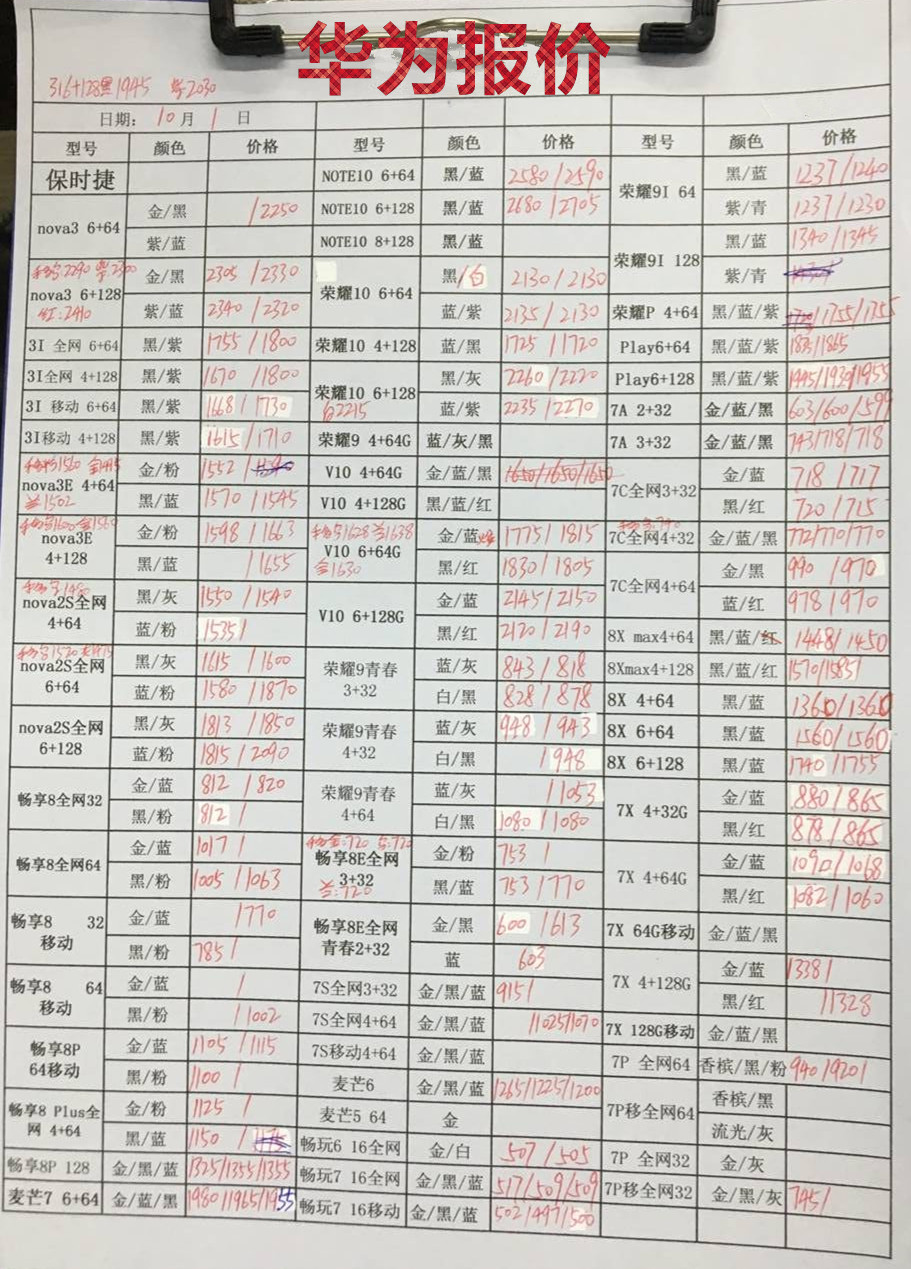 华为报价
316+128黑1945 紫2030
日期: 10月1日
型号 颜色 价格 型号 颜色 价格 型号 颜色 价格
保时捷 NOTE10 6+64 黑/蓝 2580/2590 荣耀9I 64 黑/蓝 1237/1240
nova3 6+64 金/黑 /2250 NOTE10 6+128 黑/蓝 2680/2705 紫/青 1237/1230
紫/蓝 NOTE10 8+128 黑/蓝 荣耀9I 128 黑/蓝 1340/1345
nova3 6+128 金/黑 2305/2330 荣耀10 6+64 黑/白 2130/2130 紫/青
红:2410 紫/蓝 2340/2320 蓝/紫 2135/2130 荣耀P 4+64 黑/蓝/紫 /1755/1755
3I 全网 6+64 黑/紫 1755/1800 荣耀10 4+128 蓝/黑 1725/1720 Play6+64 黑/蓝/紫 1875/1865
3I全网 4+128 黑/紫 1670/1800 荣耀10 6+128 黑/灰 2260/2220 Play6+128 黑/蓝/紫 1945/1930/1955
3I 移动 6+64 黑/紫 1668/1730 2215 蓝/紫 2235/2270 7A 2+32 金/蓝/黑 603/600/599
3I移动 4+128 黑/紫 1615/1710 荣耀9 4+64G 蓝/灰/黑 7A 3+32 金/蓝/黑 743/718/718
nova3E 4+64 金/粉 1552/ V10 4+64G 金/蓝/黑 1650/1650/1650 7C全网3+32 金/蓝 718/717
兰1502 黑/蓝 1570/1545 V10 4+128G 黑/蓝/红 黑/红 720/715
nova3E 4+128 金/粉 1598/1663 V10 6+64G 金/蓝 1775/1815 7C全网4+32 金/蓝/黑 772/770/770
黑/蓝 /1655 金1630 黑/红 1830/1805 7C全网4+64 金/黑 990/970
nova2S全网 4+64 黑/灰 1550/1540 V10 6+128G 金/蓝 2145/2150 蓝/红 978/970
蓝/粉 1535/ 黑/红 2120/2190 8X max4+64 黑/蓝/红 1448/1450
nova2S全网 6+64 黑/灰 1615/1600 荣耀9青春 3+32 蓝/灰 843/818 8Xmax4+128 黑/蓝/红 1570/1585/
蓝/粉 1580/1870 白/黑 828/878 8X 4+64 黑/蓝 1360/1360
nova2S全网 6+128 黑/灰 1813/1850 荣耀9青春 4+32 蓝/灰 948/943 8X 6+64 黑/蓝 1560/1560
蓝/粉 1815/2090 白/黑 /948 8X 6+128 黑/蓝 1740/1755
畅享8全网32 金/蓝 812/820 荣耀9青春 4+64 蓝/灰 /1053 7X 4+32G 金/蓝 880/865
黑/粉 812/ 白/黑 1080/1080 黑/红 878/865
畅享8全网64 金/蓝 1017/ 畅享8E全网 3+32 金/粉 753/ 7X 4+64G 金/蓝 1090/1068
黑/粉 1005/1063 兰:720 黑/蓝 753/770 黑/红 1082/1060
畅享8 32 移动 金/蓝 /770 畅享8E全网 青春2+32 金/黑 600/613 7X 64G移动 金/蓝/黑
黑/粉 785/ 蓝 603 7X 4+128G 金/蓝 1338/
畅享8 64 移动 金/蓝 / 7S全网3+32 金/黑/蓝 915/ 黑/红 /1328
黑/粉 /1002 7S全网4+64 金/黑/蓝 /1025/1070 7X 128G移动 金/蓝/黑
畅享8P 64移动 金/蓝 1105/1115 7S移动4+64 金/黑/蓝 7P 全网64 香槟/黑/粉 940/920/
黑/粉 1100/ 麦芒6 金/黑/蓝 1265/1225/1200 7P移全网64 香槟/黑
畅享8 Plus全网 4+64 金/粉 1125/ 麦芒5 64 金 流光/灰
黑/蓝 1150/ 畅玩6 16全网 金/白 507/505 7P 全网32 金/灰
畅享8P 128 金/黑/蓝 1325/1355/1355 畅玩7 16全网 金/黑/蓝 517/509/509 7P移全网32 金/黑/灰 745/
麦芒7 6+64 金/蓝/黑 1980/1965/1955 畅玩7 16移动 金/黑/蓝 502/497/500